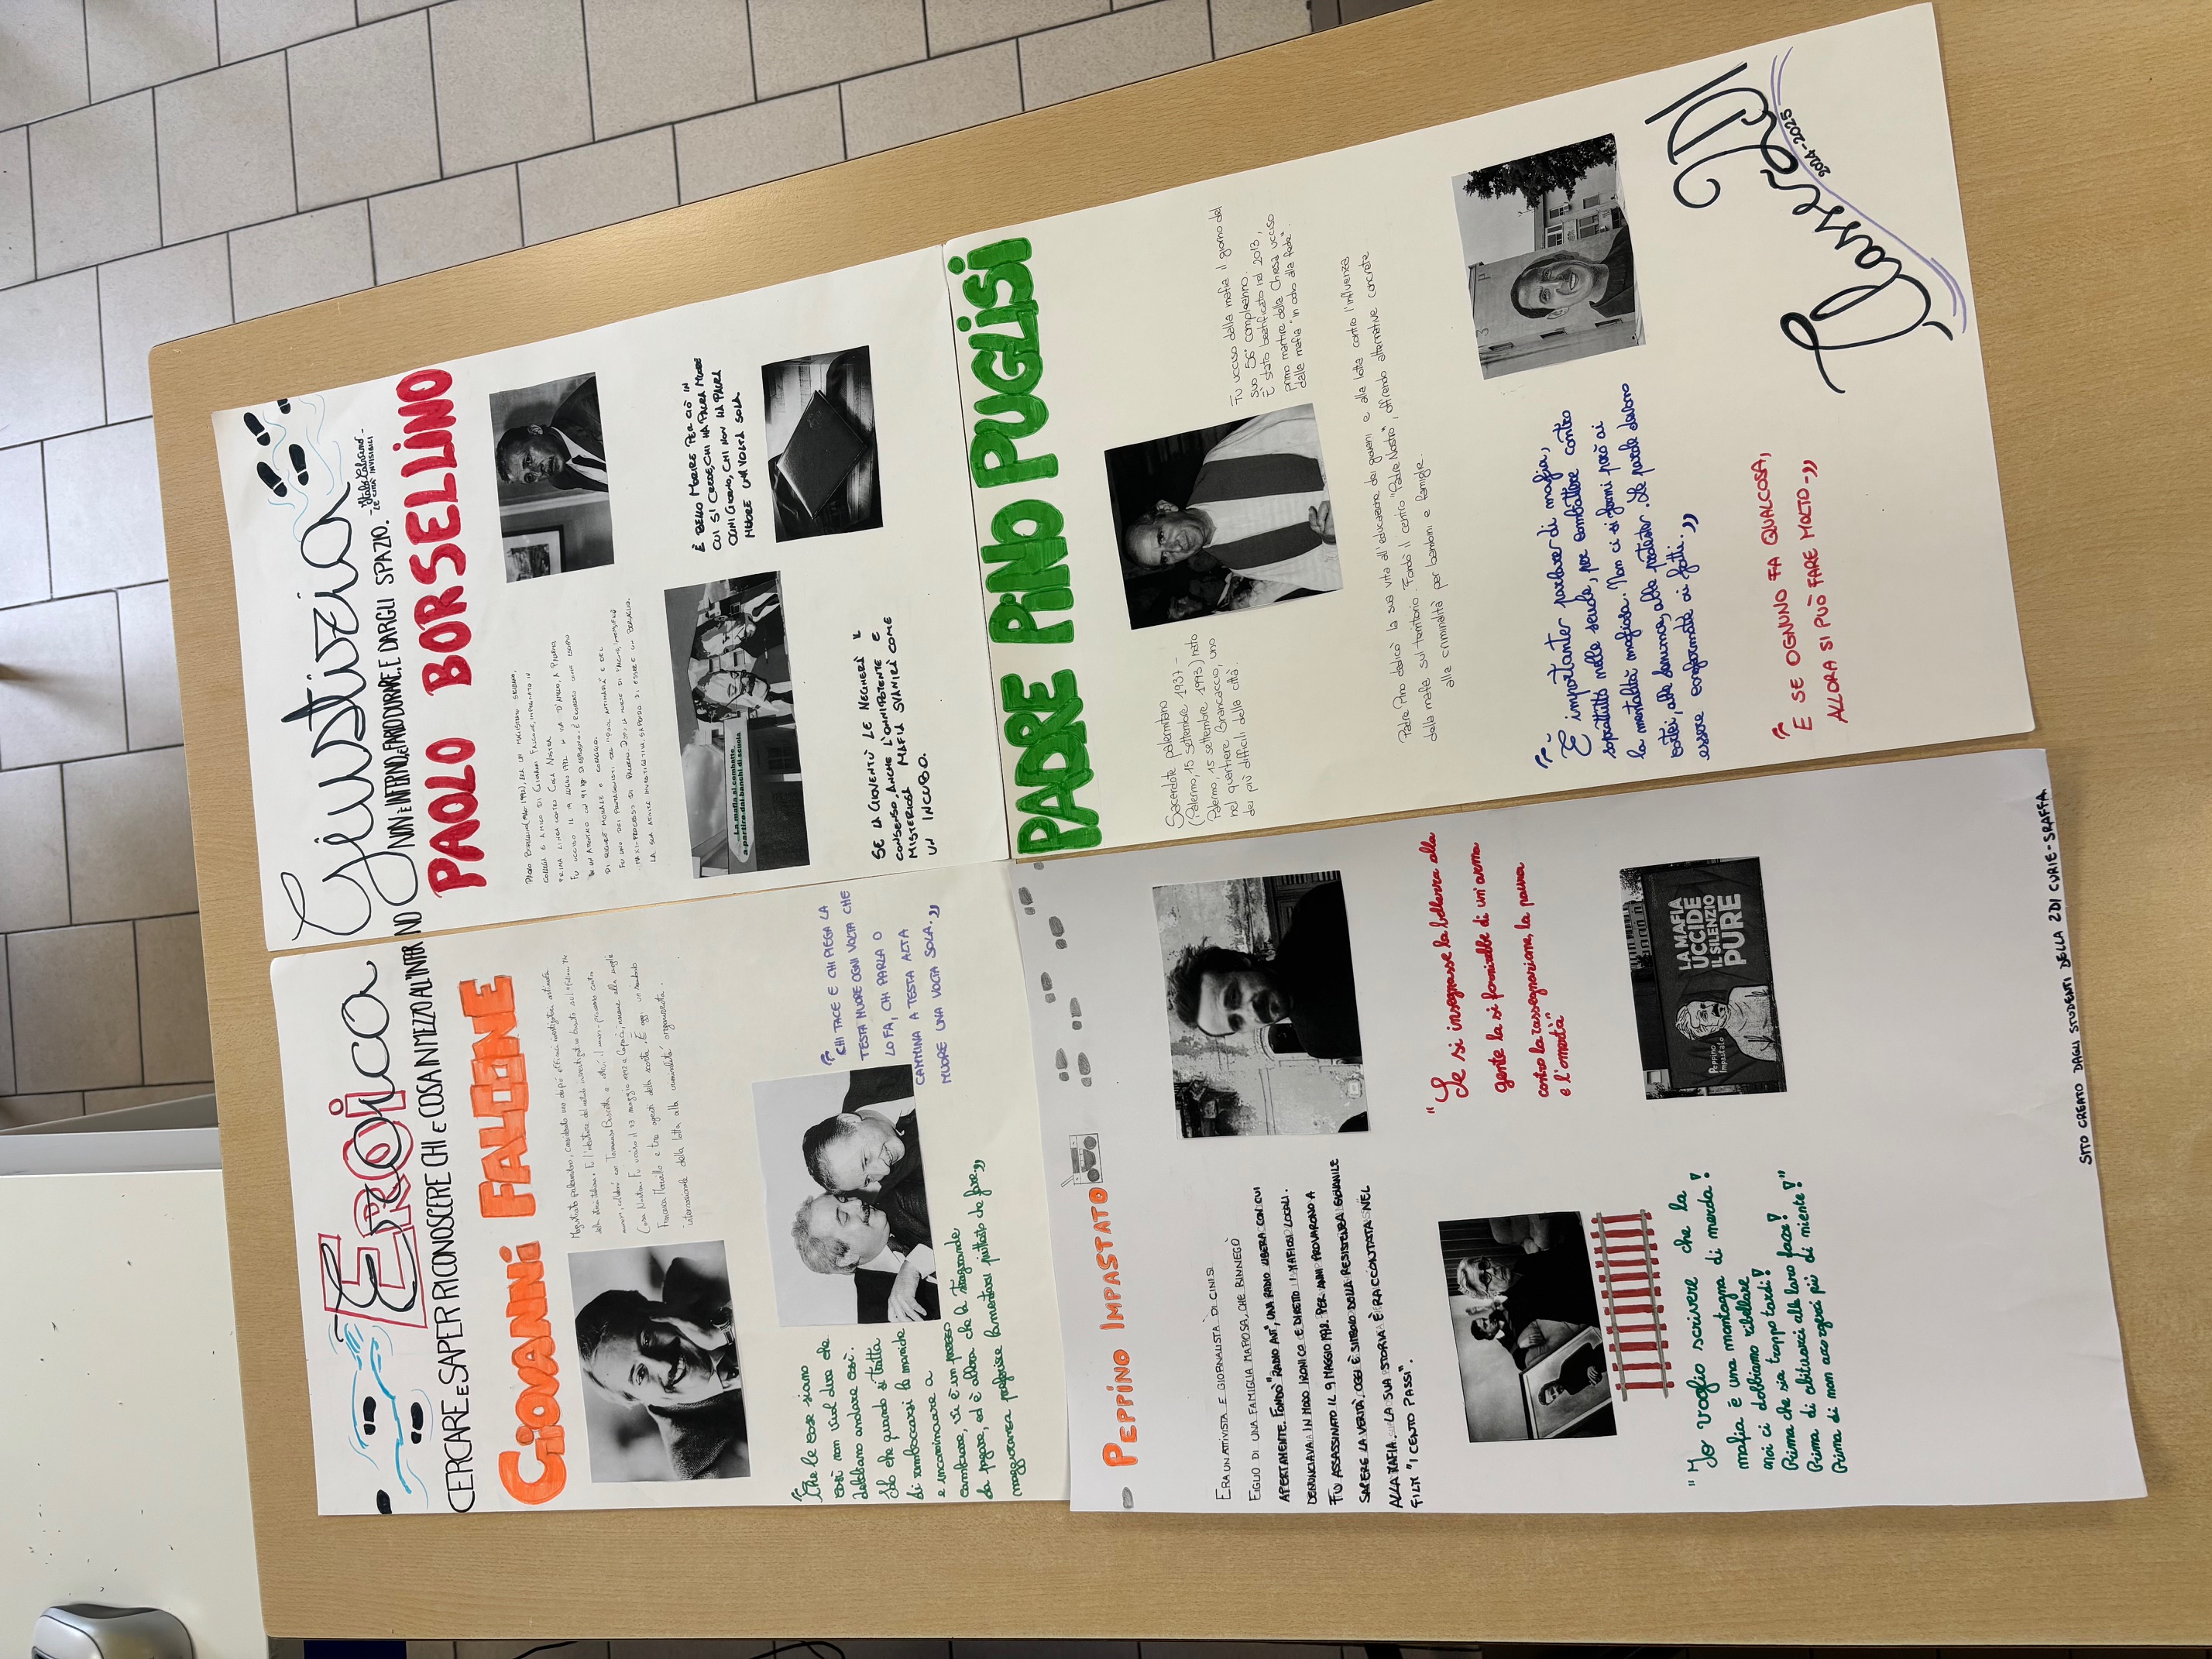 Eroica Giustizia
EROI
CERCARE E SAPER RICONOSCERE CHI E COSA IN MEZZO ALL'INFERNO NON È INFERNO, E FARLO DURARE, E DARGLI SPAZIO.
- Italo Calvino -
LE CITTÀ INVISIBILI
GIOVANNI FALCONE
Magistrato palermitano, considerato uno dei più efficaci investigatori antimafia
della storia italiana. Fu l'ideatore del metodo investigativo basato sul "Follow the
money", collaborò con Tommaso Buscetta e istruì il maxi-processo contro
Cosa Nostra. Fu ucciso il 23 maggio 1992 a Capaci, insieme alla moglie
Francesca Morvillo e tre agenti della scorta. È oggi un simbolo
internazionale della lotta alla criminalità organizzata.
"Che le cose siano
così non vuol dire che
debbano andare così.
Solo che quando si tratta
di rimboccarsi le maniche
e incominciare a
cambiare, vi è un prezzo
da pagare, ed è allora che la stragrande
maggioranza preferisce lamentarsi piuttosto che fare."
"CHI TACE E CHI PIEGA LA
TESTA MUORE OGNI VOLTA CHE
LO FA, CHI PARLA O
CAMMINA A TESTA ALTA
MUORE UNA VOLTA SOLA."
PAOLO BORSELLINO
PAOLO BORSELLINO (1940-1992), ERA UN MAGISTRATO SICILIANO,
COLLEGA E AMICO DI GIOVANNI FALCONE, IMPEGNATO IN
PRIMA LINEA CONTRO COSA NOSTRA.
FU UCCISO IL 19 LUGLIO 1992 IN VIA D'AMELIO, A PALERMO,
IN UN ATTENTATO CON 91 KG DI ESPLOSIVO. È RICORDATO COME ESEMPIO
DI RIGORE MORALE E CORAGGIO.
FU UNO DEI PROTAGONISTI DEL "POOL ANTIMAFIA" E DEL
MAXI-PROCESSO DI PALERMO. DOPO LA MORTE DI FALCONE, INTENSIFICÒ
LA SUA ATTIVITÀ INVESTIGATIVA, SAPENDO DI ESSERE UN BERSAGLIO.
La mafia si combatte
a partire dai banchi di scuola
È BELLO MORIRE PER CIÒ IN
CUI SI CREDE, CHI HA PAURA MUORE
OGNI GIORNO, CHI NON HA PAURA
MUORE UNA VOLTA SOLA
SE LA GIOVENTÙ LE NEGHERÀ IL
CONSENSO, ANCHE L'ONNIPOTENTE E
MISTERIOSA MAFIA SVANIRÀ COME
UN INCUBO.
PEPPINO IMPASTATO
ERA UN ATTIVISTA E GIORNALISTA DI CINISI
FIGLIO DI UNA FAMIGLIA MAFIOSA, CHE RINNEGÒ
APERTAMENTE. FONDÒ "RADIO AUT", UNA RADIO LIBERA CON CUI
DENUNCIAVA IN MODO IRONICO E DIRETTO I MAFIOSI LOCALI.
FU ASSASSINATO IL 9 MAGGIO 1978. PER ANNI PROVARONO A
SAPERE LA VERITÀ, OGGI È SIMBOLO DELLA RESISTENZA GIOVANILE
ALLA MAFIA. LA SUA STORIA È RACCONTATA NEL
FILM "I CENTO PASSI".
"Se si insegnasse la bellezza alla
gente la si fornirebbe di un'arma
contro la rassegnazione, la paura
e l'omertà"
"Io voglio scrivere che la
mafia è una montagna di merda!
noi ci dobbiamo ribellare
Prima che sia troppo tardi!
Prima di abituarci alle loro facce!
Prima di non accorgerci più di niente!"
Peppino
Impastato
LA MAFIA
UCCIDE
IL SILENZIO
PURE
SITO CREATO DAGLI STUDENTI DELLA 2DI CURIE-SRAFFA
PADRE PINO PUGLISI
Sacerdote palermitano
(Palermo, 15 settembre 1937 -
Palermo, 15 settembre 1993) nato
nel quartiere Brancaccio, uno
dei più difficili della città.
Fu ucciso dalla mafia il giorno del
suo 56° compleanno.
È stato beatificato nel 2013,
primo martire della Chiesa ucciso
dalla mafia "in odio alla fede".
Padre Pino dedicò la sua vita all'educazione dei giovani e alla lotta contro l'influenza
della mafia sul territorio. Fondò il centro "Padre Nostro", offrendo alternative concrete
alla criminalità per bambini e famiglie.
"È importante parlare di mafia,
soprattutto nelle scuole, per combattere contro
la mentalità mafiosa. Non ci si fermi però ai
cortei, alle denunce, alle proteste. Le parole devono
essere confermate ai fatti."
"E SE OGNUNO FA QUALCOSA,
ALLORA SI PUÒ FARE MOLTO-"
Classe 2DI
2024-2025